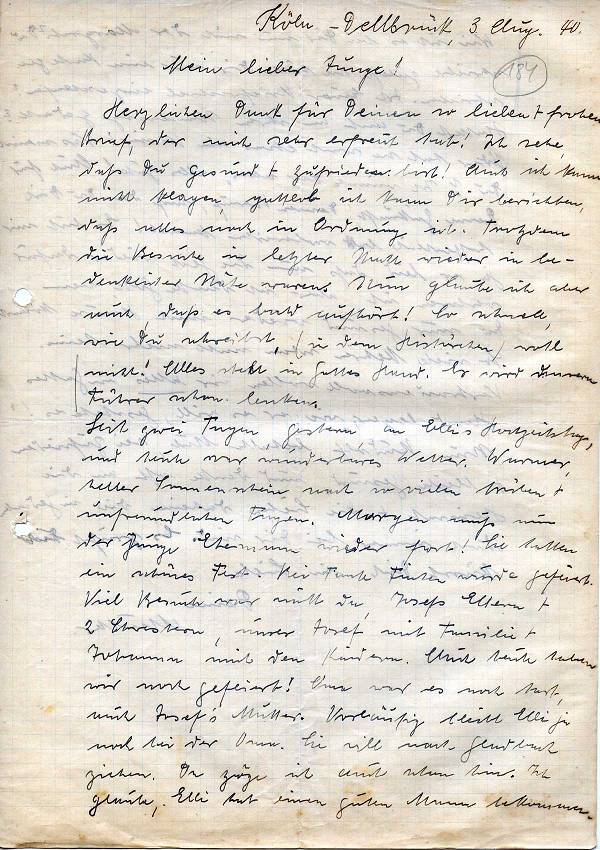 Köln-Dellbrück, 3. Aug. 40.
184
Mein lieber Junge!
Herzlichen Dank für Deinen so lieben + frohen
Brief, der mich sehr erfreut hat! Ich sehe
daß Du gesund + zufrieden bist! Auch ich kann
nicht klagen, gottlob, ich kann Dir berichten,
daß alles noch in Ordnung ist. Trotzdem
die Besuche in letzter Nacht wieder in be-
denklicher Nähe waren. Nun glaube ich aber
auch, daß es bald aufhört! So schnell,
wie Du schreibst, (in dem Histörchen) wohl
nicht! Alles steht in Gottes Hand. Er wird unsern
Führer schon lenken.
Seit zwei Tagen gestern an Ellis Hochzeitstage,
und heute war wunderbares Wetter. Warmer,
heller Sonnenschein, nach so vielen trüben +
unfreundlichen Tagen. Morgen muß nun
der junge Ehemann wieder fort! Sie hatten
ein schönes Fest. Bei Tante Finchen wurde gefeiert.
Viel Besuch war nicht da, Josefs Eltern +
2 Schwestern, unser Josef mit Familie +
Johanna mit den Kindern. Auch heute haben
wir noch gefeiert! Oma war es noch dort,
mit Josef's Mutter. Vorläufig bleibt Elli ja
noch bei der Oma. Sie will nach Gladbach
ziehen. Da zöge ich auch schon hin. Ich
glaube, Elli hat einen guten Mann bekommen.